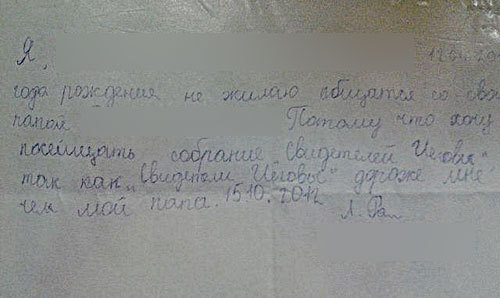 Я,
года рождения не жилаю общатся со сво
папой Потому что хочу
посещщать собрание Свидетелей Иеговы"
так как „Свидетели Иеговы" дороже мне
чем мой папа. 15.10.2012
Л. Ра